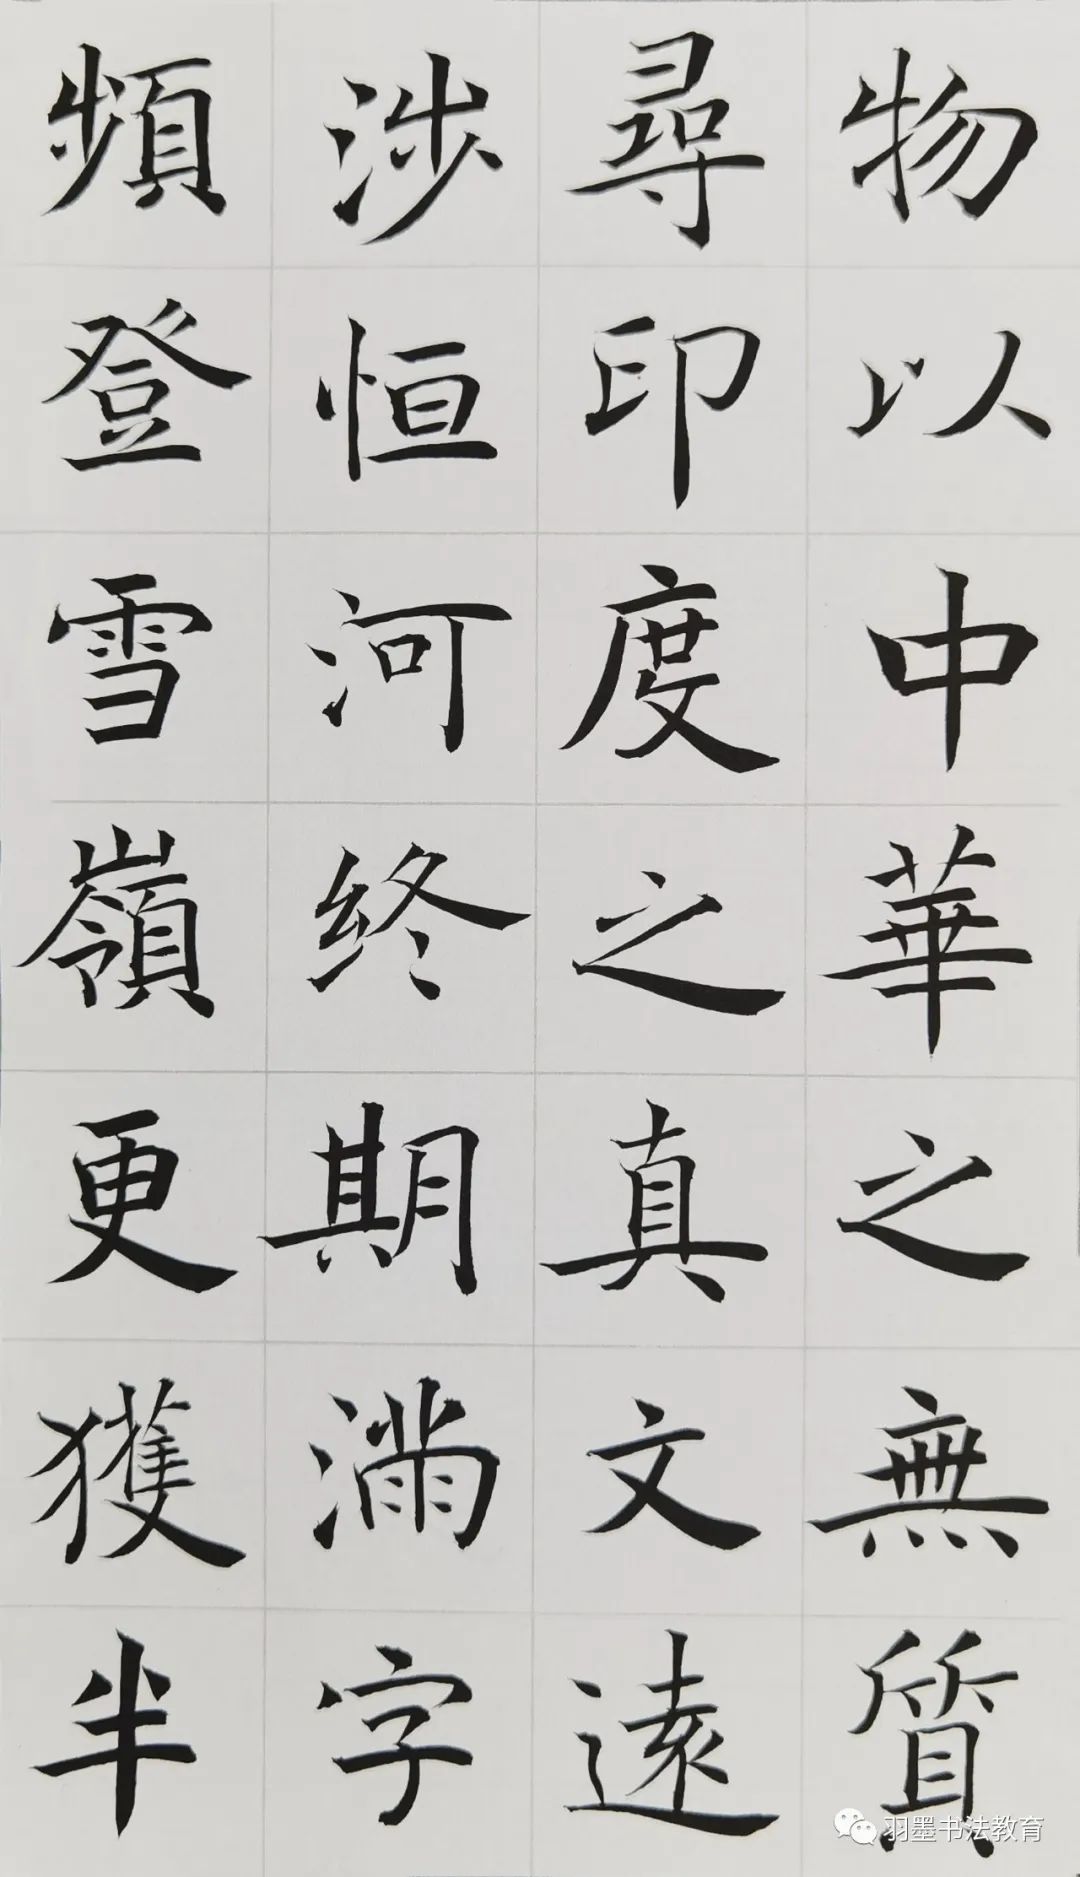 物以中華之無質
尋印度之真文遠
涉恒河终期滿字
頻登雪嶺更獲半
羽墨书法教育